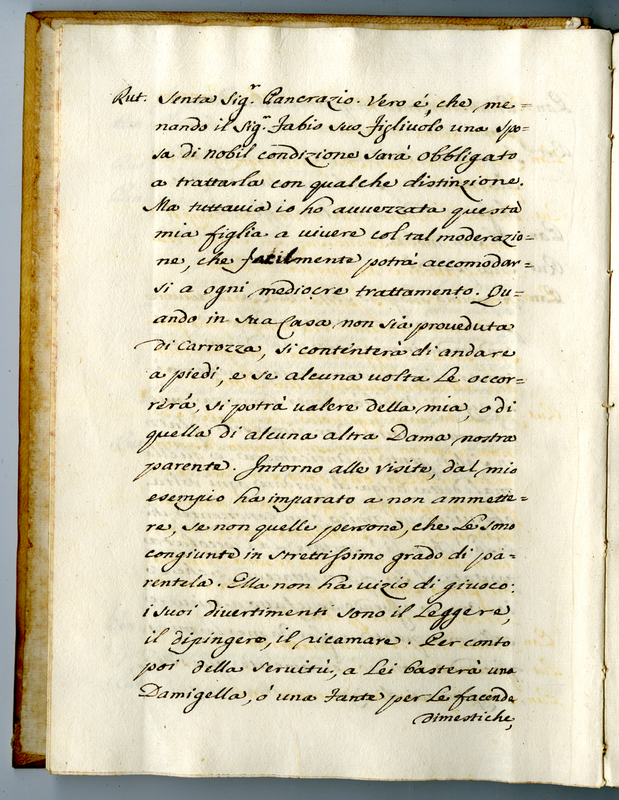 Rut. Senta Sig.r Pancrazio. Vero é, che me=
nando il Sig.r Fabio suo figlivolo una spo=
sa di nobil condizione sará obbligato
a trattarla con qualche distinzione.
Ma tuttavia io ho avvezzata questa
mia figlia a vivere col tal moderazio=
ne, che facilmente potrá accomodar=
si a ogni mediocre trattamento. Qu=
ando in sua Casa non sia proveduta
di Carrozza, si contenterá di andare
a piedi, e se alcuna volta Le occor=
rerá, si potrá valere della mia, o di
quella di alcuna altra Dama nostra
parente. Intorno alle visite, dal mio
esempio ha imparato a non ammette=
re, se non quelle persone, che Le sono
congiunte in strettissimo grado di pa=
rentela. Ella non ha vizio di giuoco:
i suoi divertimenti sono il Leggere,
il dipingere, il ricamare. Per conto
poi della servitù, a Lei basterà una
Damigella, ó una Fante per Le facende
Dimestiche,